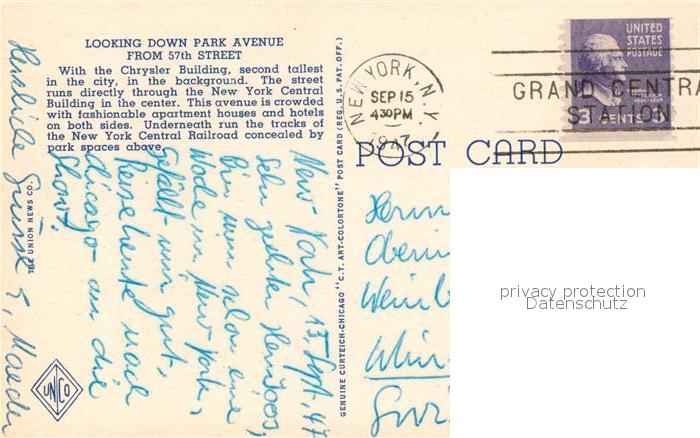 LOOKING DOWN PARK AVENUE
FROM 57th STREET
With the Chrysler Building, second tallest
in the city, in the background. The street
runs directly through the New York Central
Building in the center. This avenue is crowded
with fashionable apartment houses and hotels
on both sides. Underneath run the tracks of
the New York Central Railroad concealed by
park spaces above.
THE UNION NEWS CO.
UNCO
GENUINE CURTEICH-CHICAGO "C.T. ART-COLORTONE" POST CARD (REG. U.S. PAT. OFF.)
NEW YORK, N.Y.
SEP 15
430PM
1947
GRAND CENTRA
STATION
UNITED
STATES
POSTAGE
3 CENTS
POST CARD
New York, 13. Sept. 47
Sehr geehrter
Bin nun schon eine
Woche in New York,
gefällt mir gut,
Reise heute nach
Chicago an die
Show!
Herzliche Grüsse
Herrn
privacy protection
Datenschutz